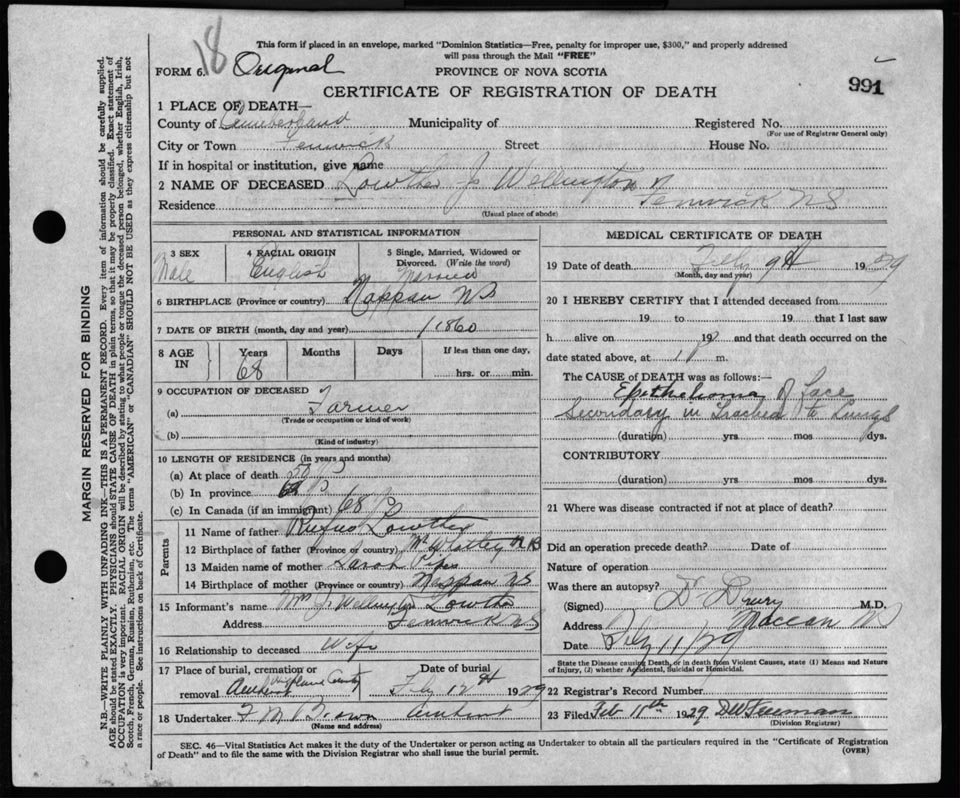 This form if placed in an envelope, marked "Dominion Statistics—Free, penalty for improper use, $300," and properly addressed
will pass through the Mail "FREE"
18
FORM 6. Original PROVINCE OF NOVA SCOTIA
991
CERTIFICATE OF REGISTRATION OF DEATH
1 PLACE OF DEATH—
County of Cumberland Municipality of Registered No.
(For use of Registrar General only)
City or Town Fenwick Street House No.
If in hospital or institution, give name
2 NAME OF DECEASED Lowther J. Wellington
Residence Fenwick N S
(Usual place of abode)
PERSONAL AND STATISTICAL INFORMATION
3 SEX 4 RACIAL ORIGIN 5 Single, Married, Widowed or Divorced. (Write the word)
Male English Married
6 BIRTHPLACE (Province or country) Nappan N S
7 DATE OF BIRTH (month, day and year) / 1860
8 AGE IN Years Months Days If less than one day,
68 hrs. or min.
9 OCCUPATION OF DECEASED
(a) Farmer
(Trade or occupation or kind of work)
(b)
(Kind of industry)
10 LENGTH OF RESIDENCE (in years and months)
(a) At place of death
(b) In province 68
(c) In Canada (if an immigrant) 68
Parents
11 Name of father Rufus Lowther
12 Birthplace of father (Province or country) Mt Whatley N B
13 Maiden name of mother Sarah Pipes
14 Birthplace of mother (Province or country) Nappan N S
15 Informant's name Mrs J. Wellington Lowther
Address Fenwick N S
16 Relationship to deceased Wife
17 Place of burial, cremation or removal Date of burial
Amherst Highland Cemetery Feby 12th 1929
18 Undertaker F M Brown Amherst
(Name and address)
MEDICAL CERTIFICATE OF DEATH
19 Date of death Feby 9th 1929
(Month, day and year)
20 I HEREBY CERTIFY that I attended deceased from
19 to 19 that I last saw
h alive on 192 and that death occurred on the
date stated above, at 1 P m.
The CAUSE OF DEATH was as follows:—
Epithelioma of face
Secondary in Trachea to Lungs
(duration) yrs mos dys.
CONTRIBUTORY
(duration) yrs mos dys.
21 Where was disease contracted if not at place of death?
Did an operation precede death? Date of
Nature of operation
Was there an autopsy?
(Signed) Dr Drury M.D.
Address Maccan N S
Date Feby 11/29
State the Disease causing Death, or in death from Violent Causes, state (1) Means and Nature
of Injury, (2) whether Accidental, Suicidal or Homicidal.
22 Registrar's Record Number
23 Filed Feb 11th 1929 D W Freeman
(Division Registrar)
SEC. 46—Vital Statistics Act makes it the duty of the Undertaker or person acting as Undertaker to obtain all the particulars required in the "Certificate of Registration
of Death" and to file the same with the Division Registrar who shall issue the burial permit. (OVER)
MARGIN RESERVED FOR BINDING
N.B.—WRITE PLAINLY WITH UNFADING INK—THIS IS A PERMANENT RECORD. Every item of information should be carefully supplied.
AGE should be stated EXACTLY. PHYSICIANS should STATE CAUSE OF DEATH in plain terms, so that it may be properly classified. Exact statement of
OCCUPATION is very important. RACIAL ORIGIN will be described by stating to what people or tongue the deceased person belonged, whether English, Irish,
Scotch, French, German, Russian, Ruthenian, etc. The terms "AMERICAN" or "CANADIAN" SHOULD NOT BE USED as they express citizenship but not
a race or people. See instructions on back of Certificate.